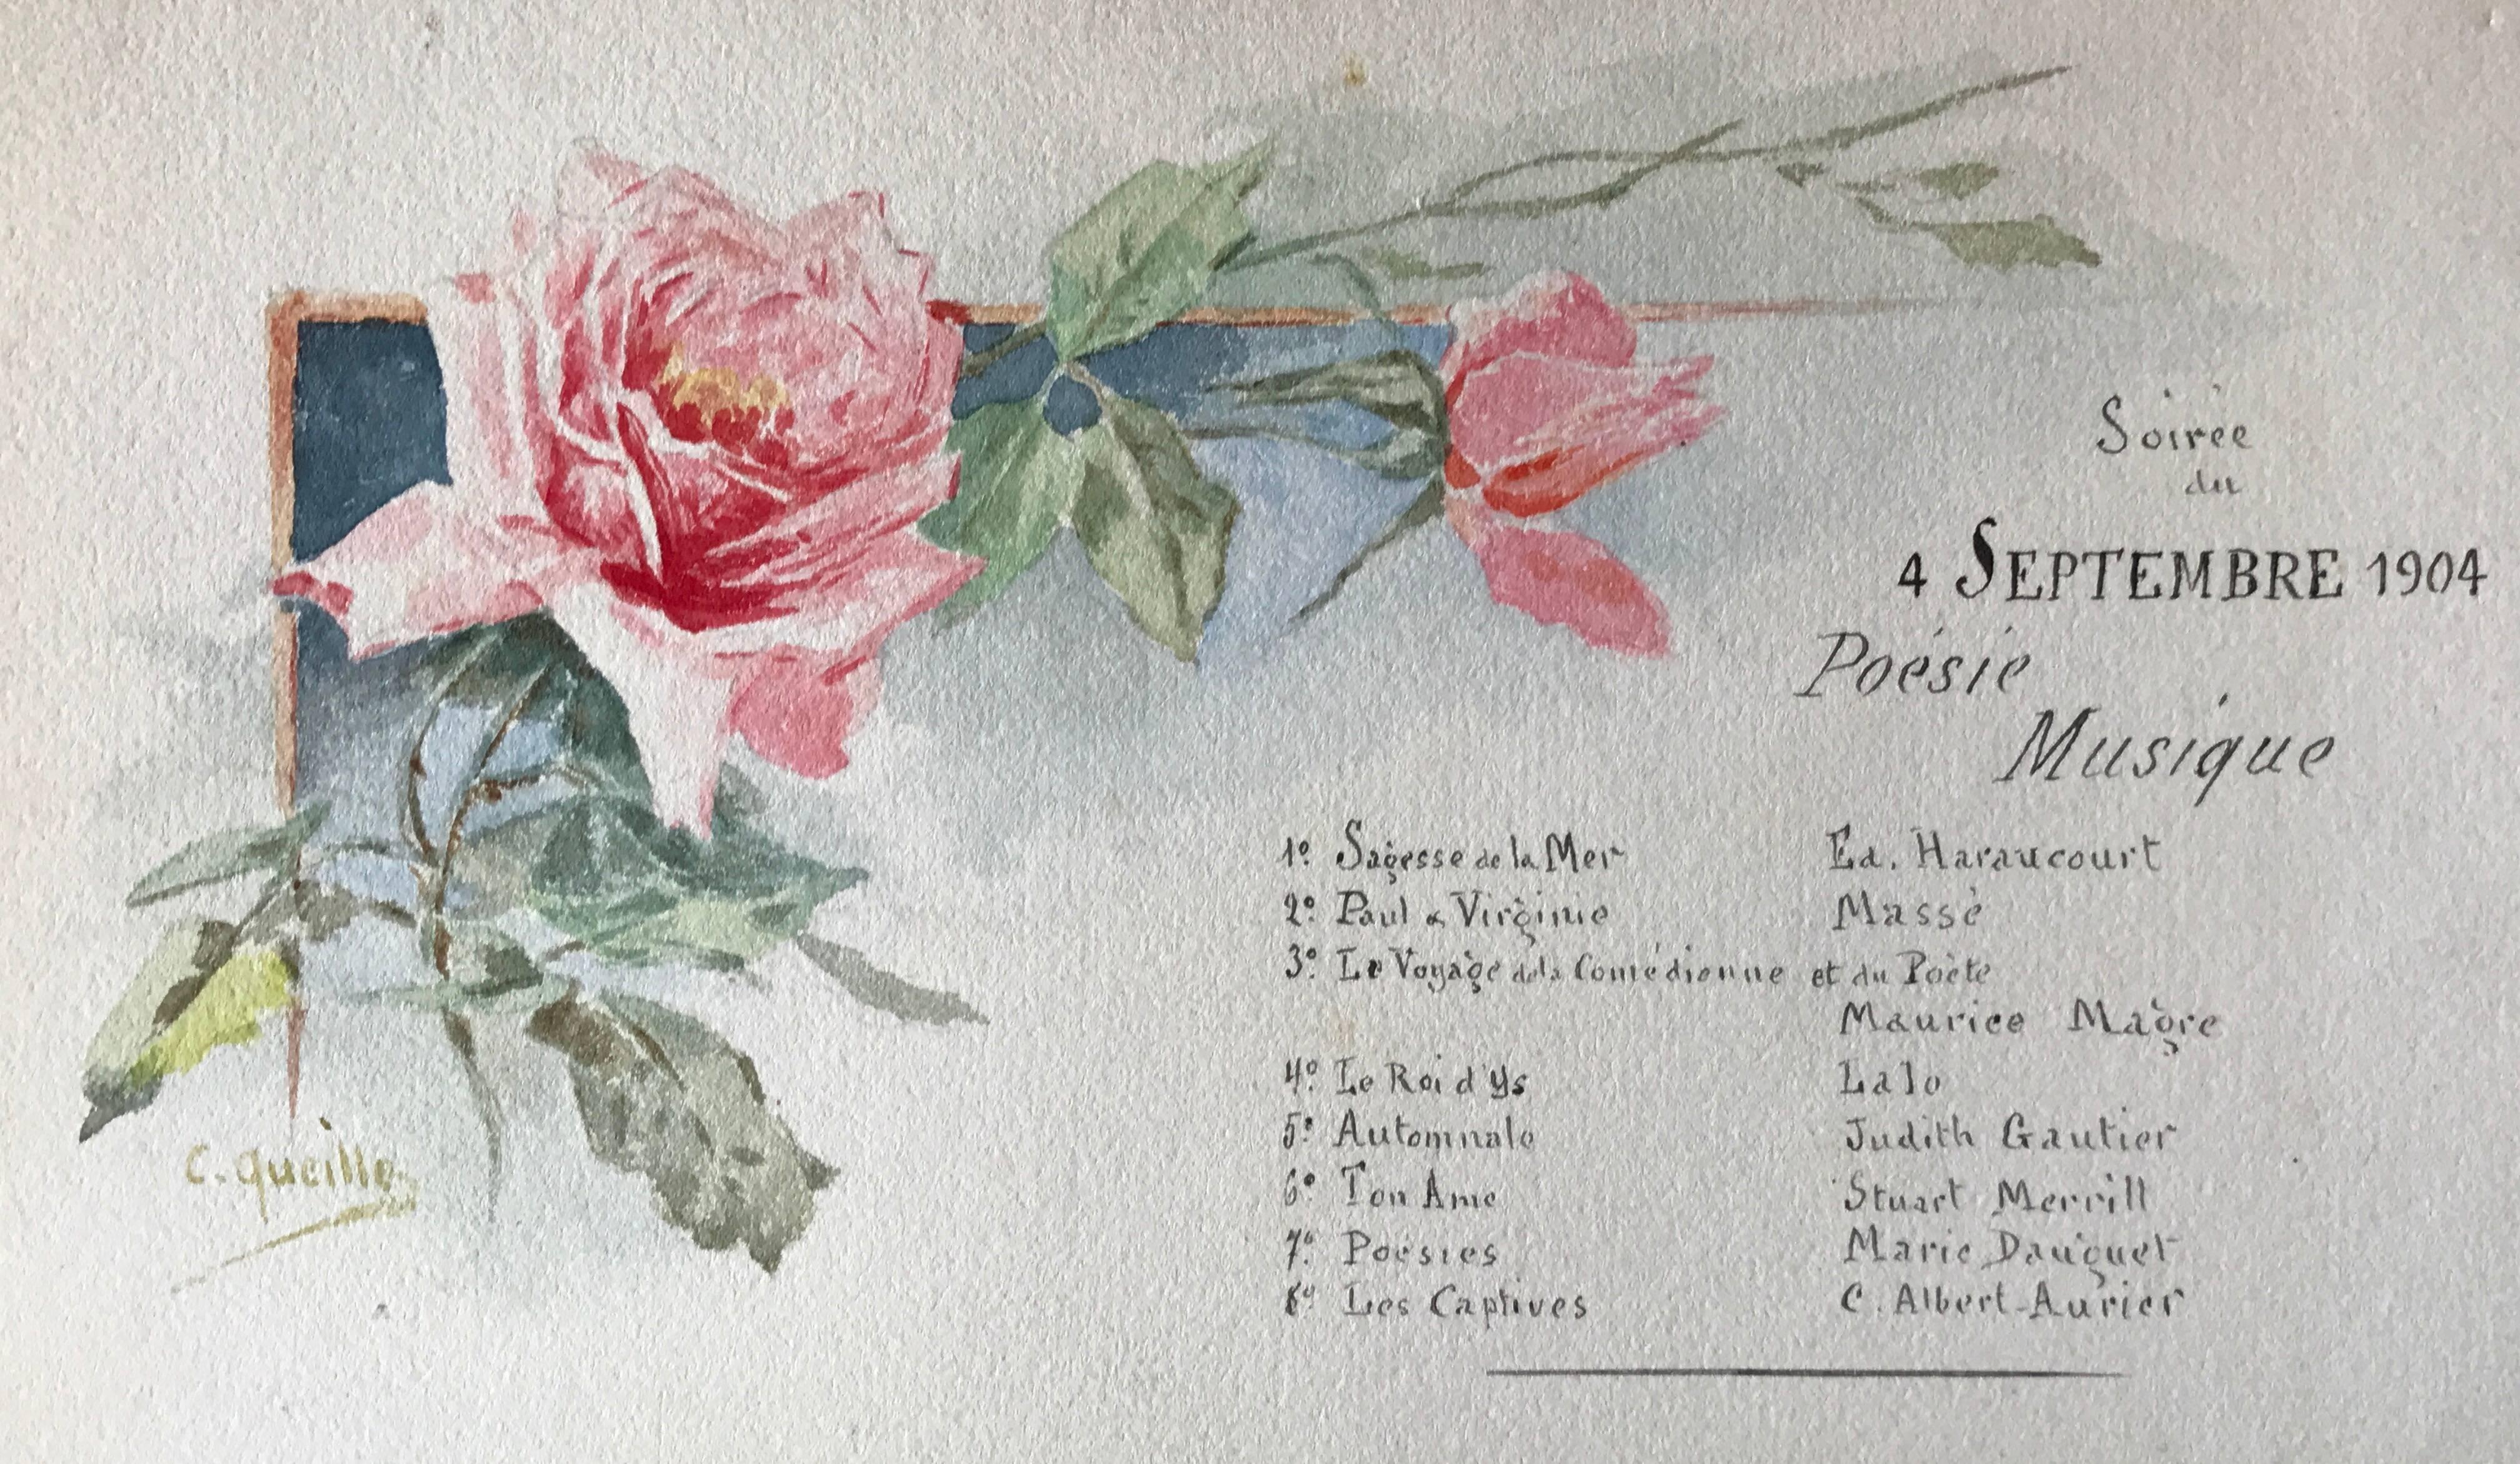 Soirée
du
4 SEPTEMBRE 1904
Poésie
Musique
1º Sagesse de la Mer Ed. Haraucourt
2º Paul & Virginie Massé
3º Le Voyage de la Comédienne et du Poète
Maurice Magre
4º Le Roi d'ys Lalo
5º Automnale Judith Gautier
6º Ton Ame Stuart Merrill
7º Poésies Marie Dauguet
8º Les Captives C. Albert-Aurier
C. Queille